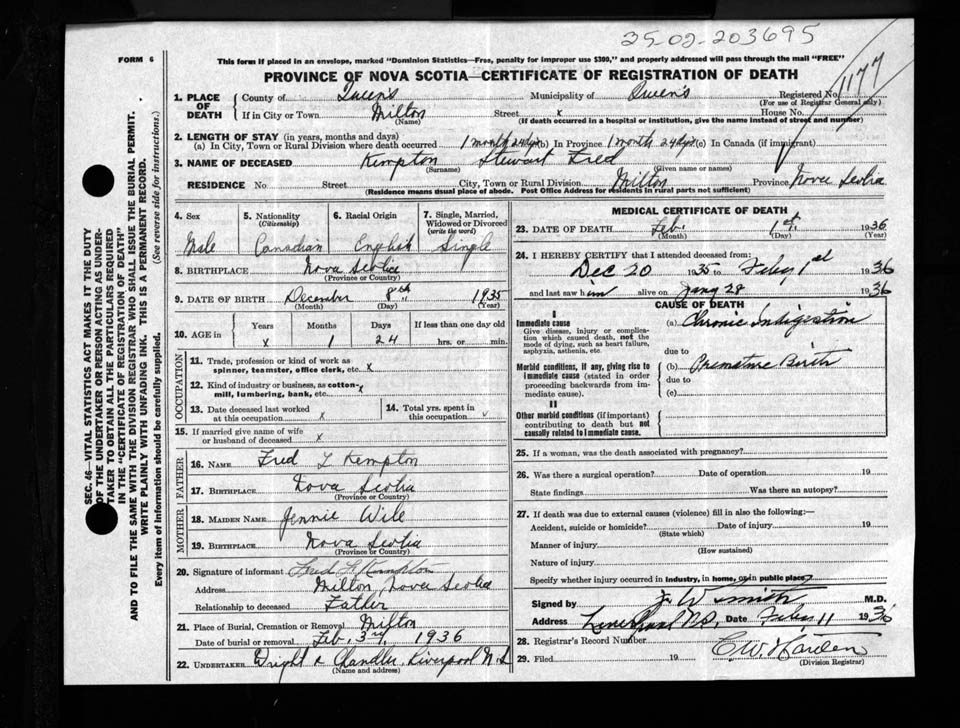 35-02-203695
FORM 6
This form if placed in an envelope, marked "Dominion Statistics—Free, penalty for improper use $300," and properly addressed will pass through the mail "FREE"
PROVINCE OF NOVA SCOTIA—CERTIFICATE OF REGISTRATION OF DEATH
1177
1. PLACE OF DEATH
County of Queen's Municipality of Queen's Registered No.
(For use of Registrar General only)
If in City or Town Milton Street x House No.
(Name) (If death occurred in a hospital or institution, give the name instead of street and number)
2. LENGTH OF STAY (in years, months and days)
(a) In City, Town or Rural Division where death occurred 1 month 24 dys (b) In Province 1 month 24 dys (c) In Canada (if immigrant)
3. NAME OF DECEASED Kempton Stewart Fred
(Surname) (Given name or names)
RESIDENCE No Street City, Town or Rural Division Milton Province Nova Scotia
(Residence means usual place of abode. Post Office Address for residents in rural parts not sufficient)
4. Sex
Male
5. Nationality
(Citizenship)
Canadian
6. Racial Origin
English
7. Single, Married, Widowed or Divorced
(write the word)
Single
8. BIRTHPLACE Nova Scotia
(Province or Country)
9. DATE OF BIRTH December 8th 1935
(Month) (Day) (Year)
10. AGE in
Years Months Days If less than one day old
x 1 24 hrs. or min.
OCCUPATION
11. Trade, profession or kind of work as
spinner, teamster, office clerk, etc. x
12. Kind of industry or business, as cotton-
mill, lumbering, bank, etc. x
13. Date deceased last worked
at this occupation x
14. Total yrs. spent in
this occupation
15. If married give name of wife
or husband of deceased x
FATHER
16. NAME Fred L Kempton
17. BIRTHPLACE Nova Scotia
(Province or Country)
MOTHER
18. MAIDEN NAME Jennie Wile
19. BIRTHPLACE Nova Scotia
(Province or Country)
20. Signature of informant Fred L Kempton
Address Milton, Nova Scotia
Relationship to deceased Father
21. Place of Burial, Cremation or Removal Milton
Date of burial or removal Feb. 3rd, 1936
22. UNDERTAKER Wright & Chandler, Liverpool N.S
(Name and address)
MEDICAL CERTIFICATE OF DEATH
23. DATE OF DEATH Feb. 1st. 1936
(Month) (Day) (Year)
24. I HEREBY CERTIFY that I attended deceased from:
Dec 20 1935 to Feby 1st 1936
and last saw him alive on Jany 28 1936
CAUSE OF DEATH
I
Immediate cause
Give disease, injury or complica-
tion which caused death, not the
mode of dying, such as heart failure,
asphyxia, asthenia, etc.
(a) Chronic Indigestion
due to
Morbid conditions, if any, giving rise to
immediate cause (stated in order
proceeding backwards from im-
mediate cause).
(b) Premature Birth
due to
(c)
II
Other morbid conditions (if important)
contributing to death but not
causally related to immediate cause.
25. If a woman, was the death associated with pregnancy?
26. Was there a surgical operation? Date of operation 19
State findings Was there an autopsy?
27. If death was due to external causes (violence) fill in also the following:—
Accident, suicide or homicide? Date of injury 19
(State which)
Manner of injury
(How sustained)
Nature of injury
Specify whether injury occurred in industry, in home, or in public place
Signed by J. W. Smith M.D.
Address Liverpool N.S. Date Feby 11 1936
28. Registrar's Record Number
29. Filed 19 C.W.
(Division Registrar)
SEC. 46—VITAL STATISTICS ACT MAKES IT THE DUTY
OF THE UNDERTAKER OR PERSON ACTING AS UNDER-
TAKER TO OBTAIN ALL THE PARTICULARS REQUIRED
IN THE "CERTIFICATE OF REGISTRATION OF DEATH"
AND TO FILE THE SAME WITH THE DIVISION REGISTRAR WHO SHALL ISSUE THE BURIAL PERMIT.
WRITE PLAINLY WITH UNFADING INK. THIS IS A PERMANENT RECORD.
Every item of information should be carefully supplied. (See reverse side for instructions.)